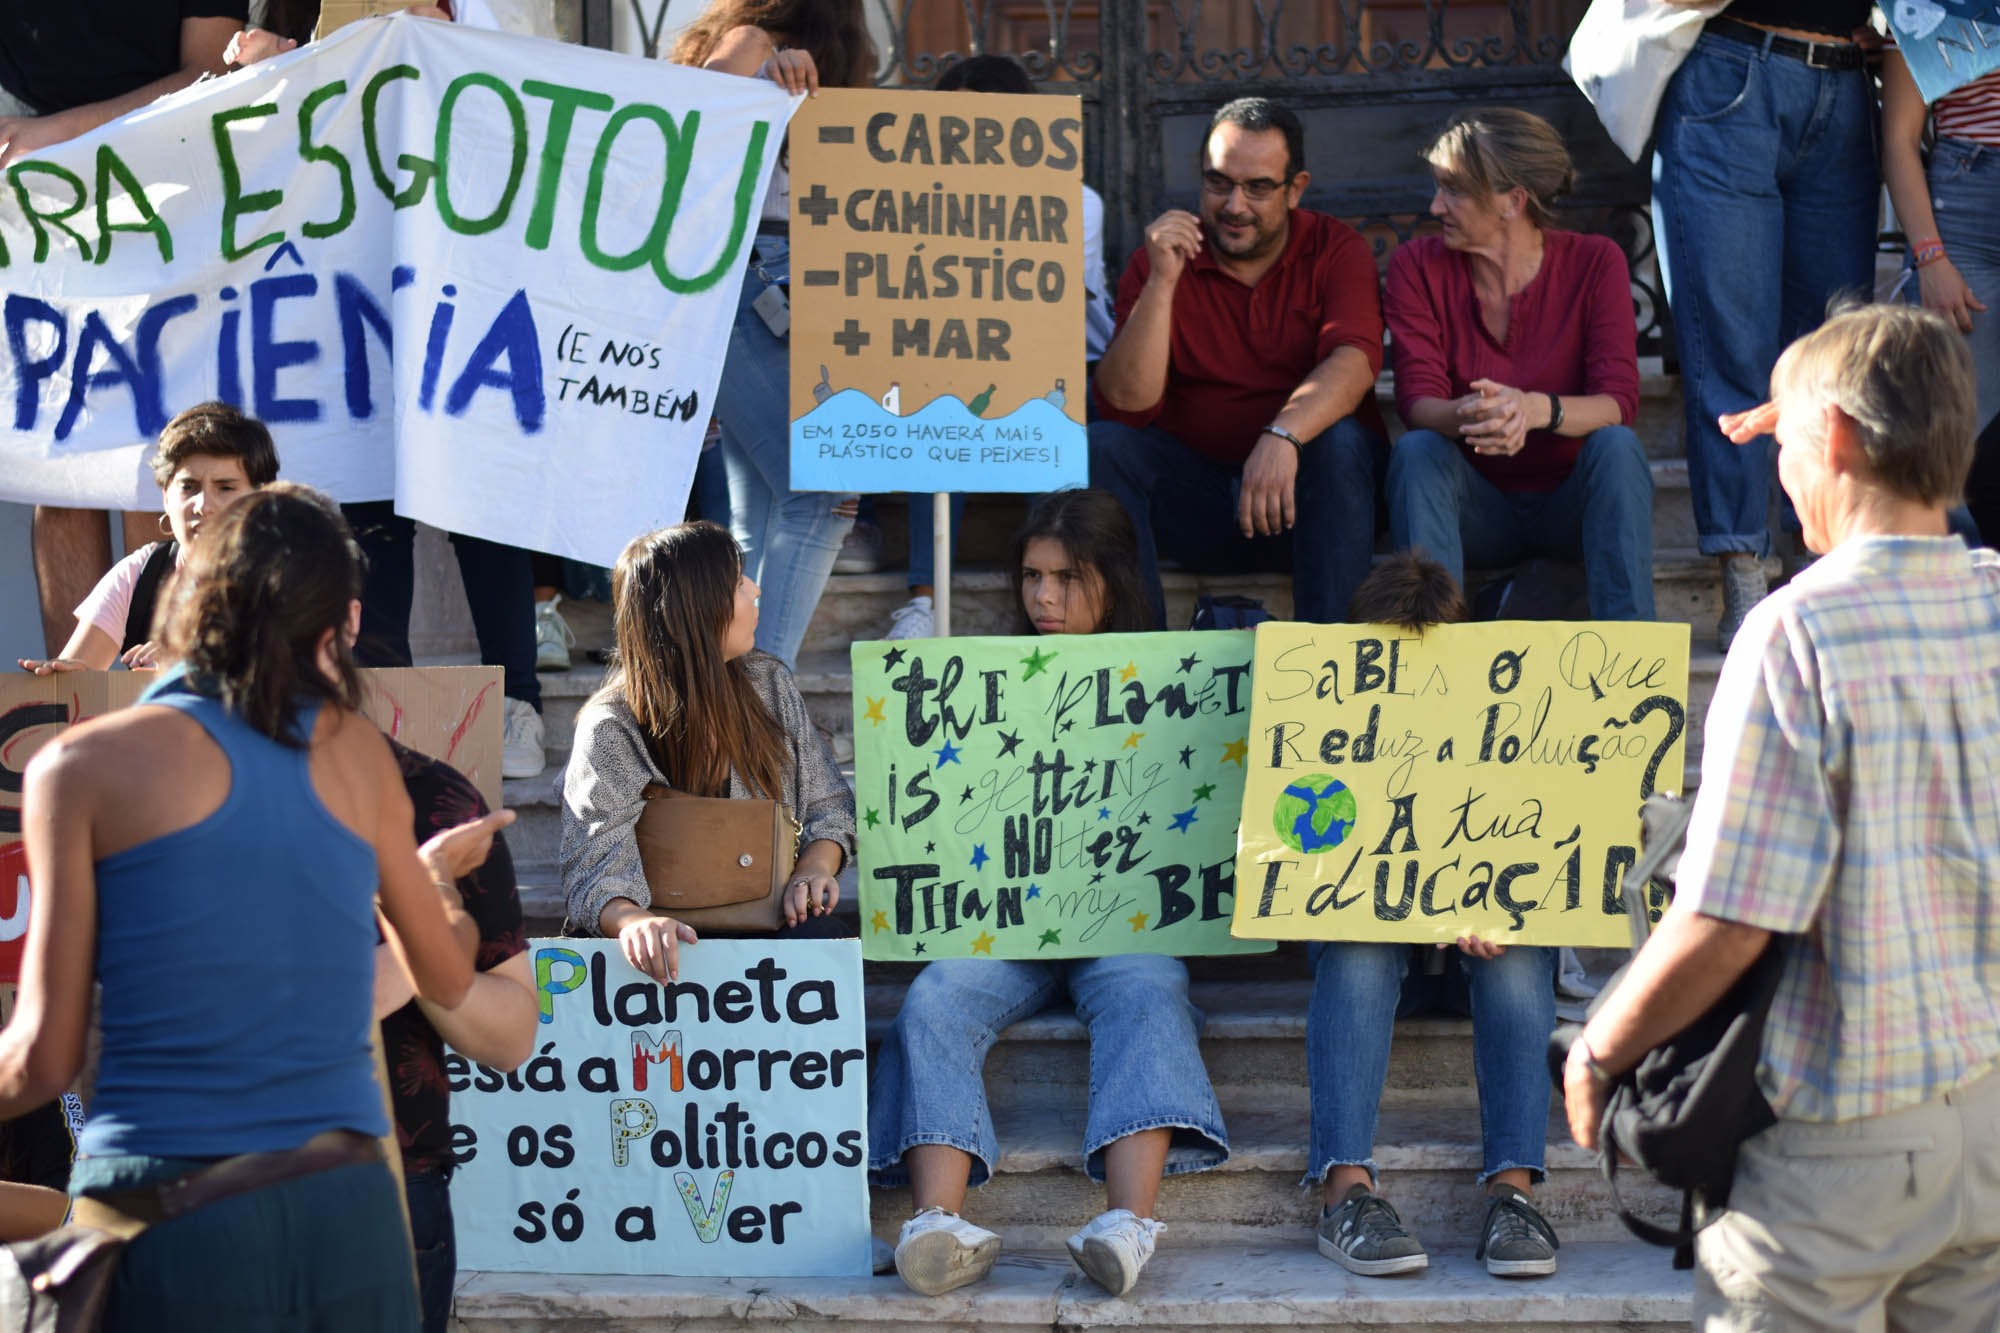 ESGOTOU
PACIÊNCIA
(E NÓS
TAMBÉM)
- CARROS
+ CAMINHAR
- PLÁSTICO
+ MAR
EM 2050 HAVERÁ MAIS
PLÁSTICO QUE PEIXES!
the PLanet
is getting
HOtter
THaN my BE
SaBEs o Que
Reduz a Poluição?
A tua
EdUCaÇÃO!
Planeta
está a Morrer
e os Políticos
só a Ver